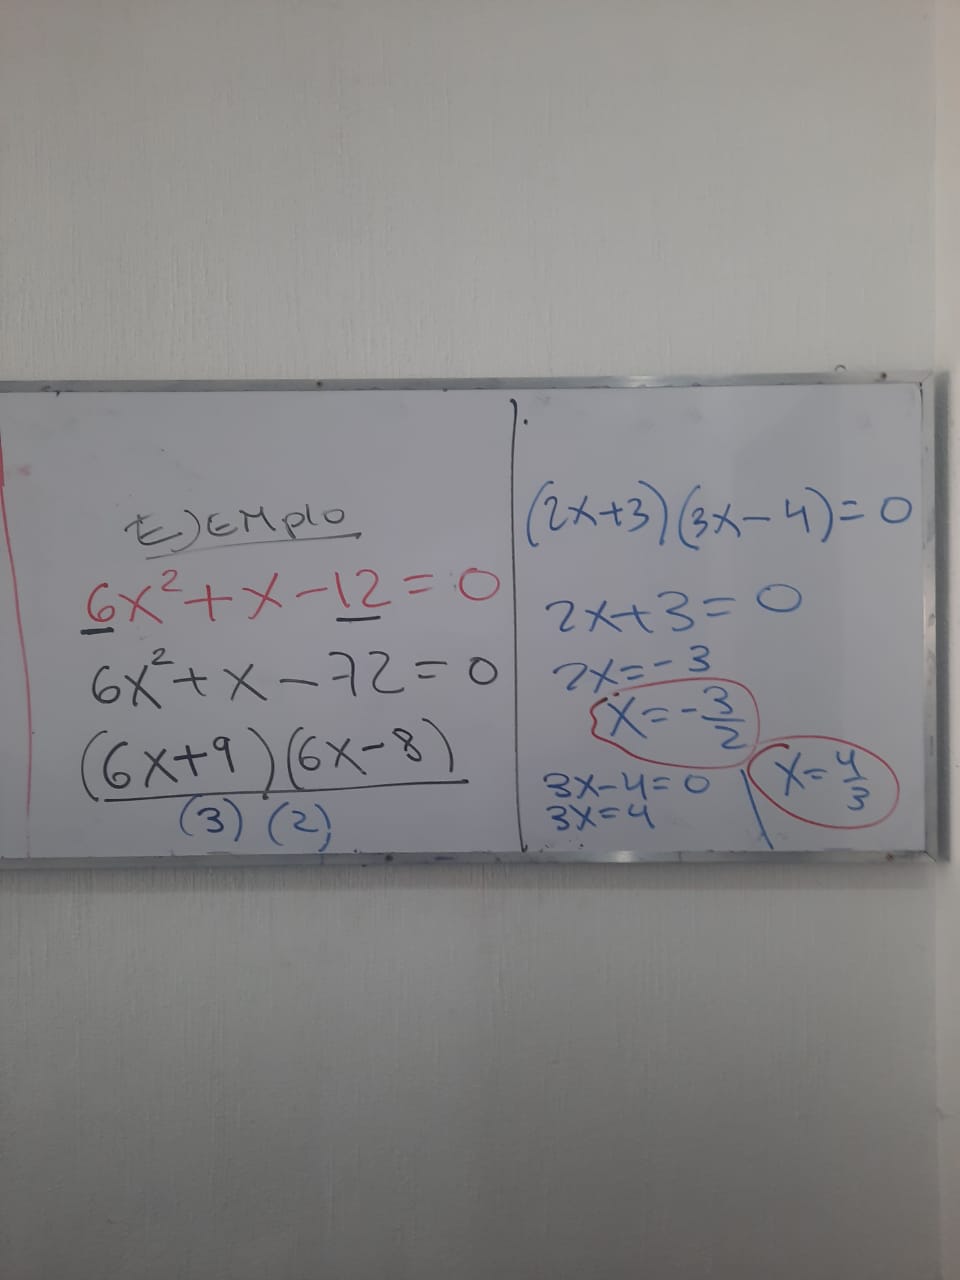 EJEMplo
6x²+x-12=0
6x²+x-72=0
(6x+9)(6x-8)
(3)(2)
(2x+3)(3x-4)=0
2x+3=0
2x=-3
x=-3/2
3x-4=0
3x=4
x=4/3